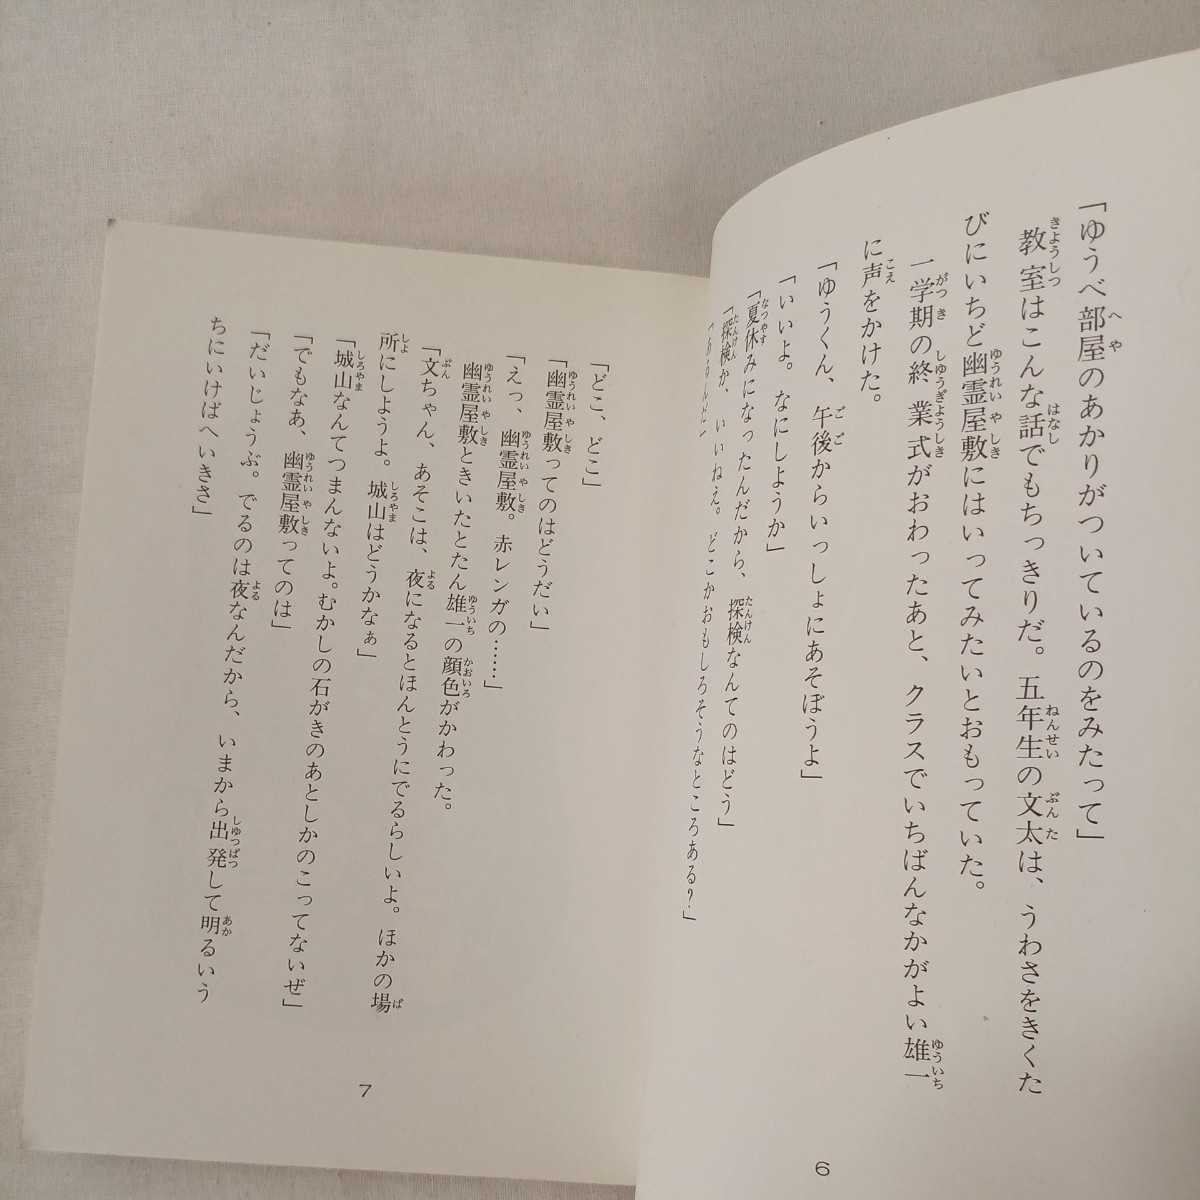 「ゆうべ部屋のあかりがついているのをみたって」
教室はこんな話でもちっきりだ。五年生の文太は、うわさをきくた
びにいちど幽霊屋敷にはいってみたいとおもっていた。
一学期の終業式がおわったあと、クラスでいちばんなかがよい雄一
に声をかけた。
「ゆうくん、午後からいっしょにあそぼうよ」
「いいよ。なにしようか」
「夏休みになったんだから、探検なんてのはどう」
「探検か、いいねえ。どこかおもしろそうなところある?」
「どこ、どこ」
「幽霊屋敷ってのはどうだい」
「えっ、幽霊屋敷。赤レンガの……」
幽霊屋敷ときいたとたん雄一の顔色がかわった。
「文ちゃん、あそこは、夜になるとほんとうにでるらしいよ。ほかの場
所にしようよ。城山はどうかなぁ」
「城山なんてつまんないよ。むかしの石がきのあとしかのこってないぜ」
「でもなあ、幽霊屋敷ってのは」
「だいじょうぶ。でるのは夜なんだから、いまから出発して明るいう
ちにいけばへいきさ」
6
7